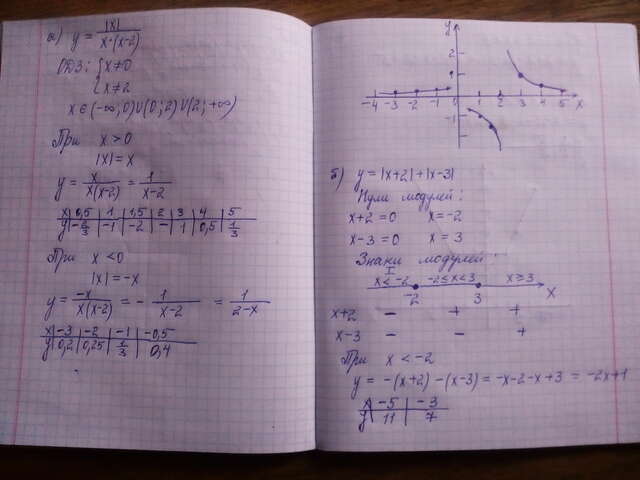 а) y = |x| / x·(x-2)
ОДЗ: { x≠0
x≠2
x∈(-∞;0)∪(0;2)∪(2;+∞)
При x>0
|x|=x
y = x / x(x-2) = 1 / x-2
x | 0,5 | 1 | 1,5 | 2 | 3 | 4 | 5
y | -2/3 | -1 | -2 | - | 1 | 0,5 | 1/3
При x<0
|x|=-x
y = -x / x(x-2) = - 1 / x-2 = 1 / 2-x
x | -3 | -2 | -1 | -0,5
y | 0,2 | 0,25 | 1/3 | 0,4
y
2
-4 -3 -2 -1 0 1 2 3 4 5 x
-1
б) y = |x+2|+|x-3|
Нули модулей:
x+2=0 x=-2
x-3=0 x=3
Знаки модулей:
I
x<-2 -2≤x<3 x≥3
-2 3 x
x+2 - + +
x-3 - - +
При x<-2
y = -(x+2)-(x-3) = -x-2-x+3 = -2x+1
x | -5 | -3
y | 11 | 7